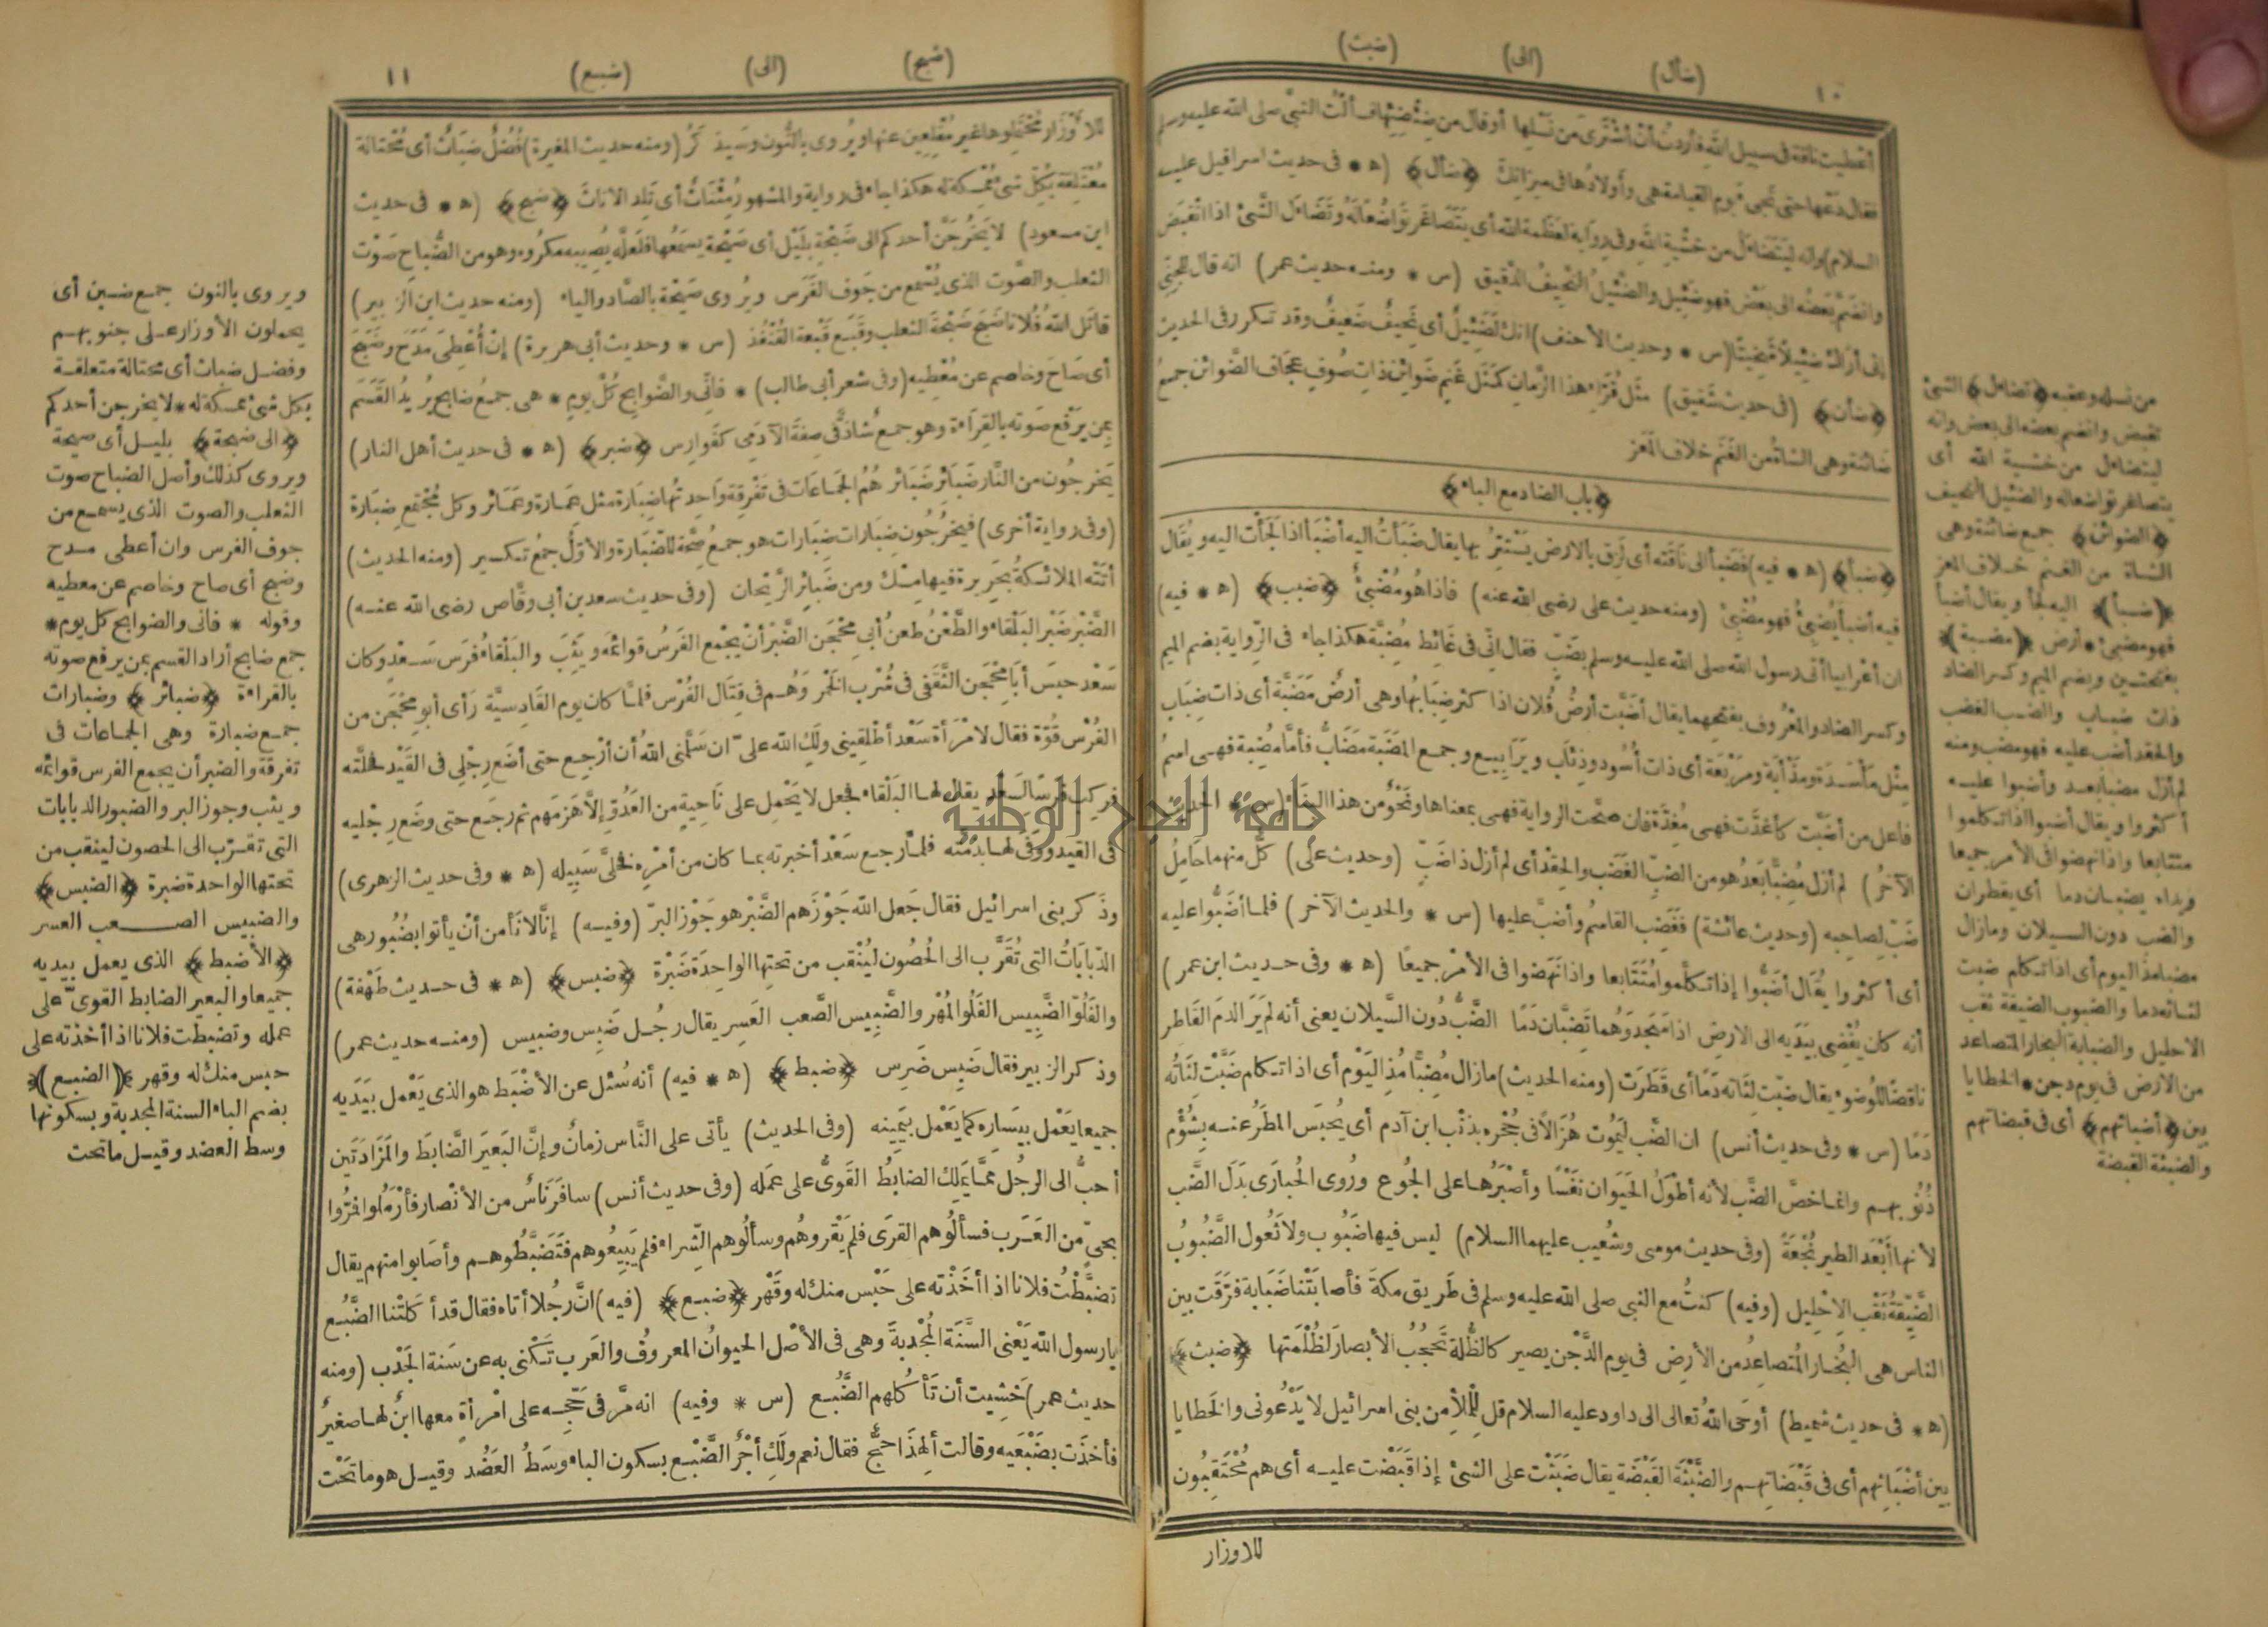 ١٠ (ضأل) (الى) (ضبث)
أعطيت ناقة فى سبيل الله فأردت أن أشترى من نسلها أو قال من ضئضئها فسألت النبي صلى الله عليه وسلم
فقال دعها حتى تجىء يوم القيامة هى وأولادها فى ميزانك ﴿ضأل﴾ (ه * فى حديث اسرافيل عليه
السلام) وانه ليتضاءل من خشية الله وفى رواية لعظمة الله أى يتصاغر تواضعا له وتضاءل الشئ اذا انقبض
وانضم بعضه الى بعض فهو ضئيل والضئيل النحيف الدقيق (س * ومنه حديث عمر) انه قال للجنى
انى أراك ضئيلا شخيتا (س * وحديث الأحنف) انك لضئيل أى نحيف ضعيف وقد تكرر فى الحديث
﴿ضأن﴾ (فى حديث شقيق) مثل قراء هذا الزمان كمثل غنم ضوائن ذات صوف عجاف الضوائن جمع
ضائنة وهى الشاة من الغنم خلاف المعز
﴿باب الضاد مع الباء﴾
﴿ضبأ﴾ (ه * فيه) فضبأ الى ناقته أى لزق بالارض يستتر بها يقال ضبأت اليه أضبأ اذا لجأت اليه ويقال
فيه أضبأ يضبئ فهو مضبئ (ومنه حديث على رضى الله عنه) فاذا هو مضبئ ﴿ضبب﴾ (ه * فيه)
ان أعرابيا أتى رسول الله صلى الله عليه وسلم بضب فقال انى فى غائط مضبة هكذا جاء فى الرواية بضم الميم
وكسر الضاد والمعروف بفتحهما يقال أضبت أرض فلان اذا كثر ضبابها وهى أرض مضبة أى ذات ضباب
مثل مأسدة ومذأبة ومربعة أى ذات أسود وذئاب ويرابيع وجمع المضبة مضاب فأما مضبة فهى اسم
فاعل من أضبت كأغدت فهى مغدة فان صحت الرواية فهى بمعناها ونحو من هذا البناء (س * الحديث
الآخر) لم أزل مضبا بعد هو من الضب الغضب والحقد أى لم أزل ذا ضب (وحديث على) كل منهما حامل
ضب لصاحبه (وحديث عائشة) فغضب القاسم وأضب عليها (س * والحديث الآخر) فلما أضبوا عليه
أى أكثروا يقال أضبوا إذا تكلموا متتابعا واذا نهضوا فى الأمر جميعا (ه * وفى حديث ابن عمر)
أنه كان يفضى بيديه الى الارض اذا سجد وهما تضبان دما الضب دون السيلان يعنى أنه لم ير الدم القاطر
ناقضا للوضوء يقال ضبت لثاته دما أى قطرت (ومنه الحديث) مازال مضبا مذ اليوم أى اذا تكلم ضبت لثاته
دما (س * وفى حديث أنس) ان الضب ليموت هزالا فى جحره بذنب ابن آدم أى يحبس المطر عنه بشؤم
ذنوبهم وانما خص الضب لأنه أطول الحيوان نفسا وأصبرها على الجوع وروى الحبارى بدل الضب
لأنها أبعد الطير نجعة (وفى حديث موسى وشعيب عليهما السلام) ليس فيها ضبوب ولا ثعول الضبوب
الضيقة ثقب الاحليل (وفيه) كنت مع النبى صلى الله عليه وسلم فى طريق مكة فأصابتنا ضبابة فرقت بين
الناس هى البخار المتصاعد من الأرض فى يوم الدجن يصير كالظلة تحجب الأبصار لظلمتها ﴿ضبث﴾
(ه * فى حديث شميط) أوحى الله تعالى الى داود عليه السلام قل للملأ من بنى اسرائيل لا يدعونى والخطايا
بين أضباثهم أى فى قبضاتهم والضبثة القبضة يقال ضبثت على الشئ إذا قبضت عليه أى هم محتقبون
للاوزار
من نسله وعقبه ﴿تضاءل﴾ الشئ
تقبض وانضم بعضه الى بعض وانه
ليتضاءل من خشية الله أى
يتصاغر تواضعا له والضئيل النحيف
﴿الضوائن﴾ جمع ضائنة وهى
الشاة من الغنم خلاف المعز
﴿ضبأ﴾ اليه لجأ ويقال أضبأ
فهو مضبئ * أرض ﴿مضبة﴾
بفتحتين وبضم الميم وكسر الضاد
ذات ضباب والضب الغضب
والحقد أضب عليه فهو مضب ومنه
لم أزل مضبا بعد وأضبوا عليه
أكثروا ويقال أضبوا اذا تكلموا
متتابعا واذا نهضوا فى الأمر جميعا
ويداه يضبان دما أى يقطران
والضب دون السيلان ومازال
مضبا مذ اليوم أى اذا تكلم ضبت
لثاته دما والضبوب الضيقة ثقب
الاحليل والضبابة البخار المتصاعد
من الأرض فى يوم دجن * الخطايا
بين ﴿أضباثهم﴾ أى فى قبضاتهم
والضبثة القبضة
(ضبج) (الى) (ضبع) ١١
للأوزار محتملوها غير مقلعين عنها ويروى بالنون وسيذكر (ومنه حديث المغيرة) فضل ضباث أى مختالة
معتلقة بكل شئ ممسكة له هكذا جاء فى رواية والمشهور مئناث أى تلد الاناث ﴿ضبح﴾ (ه * فى حديث
ابن مسعود) لا يخرجن أحدكم الى ضبحة بليل أى صيحة يسمعها فلعله يصيبه مكروه وهو من الضباح صوت
الثعلب والصوت الذى يسمع من جوف الفرس ويروى صيحة بالصاد والياء (ومنه حديث ابن الزبير)
قاتل الله فلانا ضبح ضبحة الثعلب وقبع قبعة القنفذ (س * وحديث أبى هريرة) إن أعطى مدح وضبح
أى صاح وخاصم عن معطيه (وفى شعر أبى طالب) * فانى والضوابح كل يوم * هى جمع ضابح يريد القسم
بمن يرفع صوته بالقراءة وهو جمع شاذ فى صفة الآدمى كفوارس ﴿ضبر﴾ (ه * فى حديث أهل النار)
يخرجون من النار ضبائر ضبائر هم الجماعات فى تفرقة واحدتها ضبارة مثل عمارة وعمائر وكل مجتمع ضبارة
(وفى رواية أخرى) فيخرجون ضبارات ضبارات هو جمع صحة للضبارة والأول جمع تكسير (ومنه الحديث)
أتته الملائكة بحريرة فيها مسك ومن ضبائر الريحان (وفى حديث سعد بن أبى وقاص رضى الله عنه)
الضبر ضبر البلقاء والطعن طعن أبى محجن الضبر أن يجمع الفرس قوائمه ويثب والبلقاء فرس سعد وكان
سعد حبس أبا محجن الثقفى فى شرب الخمر وهم فى قتال الفرس فلما كان يوم القادسية رأى أبو محجن من
الفرس قوة فقال لامرأة سعد أطلقينى ولك الله على ان سلمنى الله أن أرجع حتى أضع رجلى فى القيد فحلته
فركب فرسا لسعد يقال لها البلقاء فجعل لا يحمل على ناحية من العدو إلا هزمهم ثم رجع حتى وضع رجليه
فى القيد ووفى لها بذمته فلما رجع سعد أخبرته بما كان من أمره فخلى سبيله (ه * وفى حديث الزهرى)
وذكر بنى اسرائيل فقال جعل الله جوزهم الضبر هو جوز البر (وفيه) إنا لا نأمن أن يأتوا بضبور هى
الدبابات التى تقرب الى الحصون لينقب من تحتها الواحدة ضبرة ﴿ضبس﴾ (ه * فى حديث طهفة)
والفلو الضبيس الفلو المهر والضبيس الصعب العسر يقال رجل ضبس وضبيس (ومنه حديث عمر)
وذكر الزبير فقال ضبس ضرس ﴿ضبط﴾ (ه * فيه) أنه سئل عن الأضبط هو الذى يعمل بيديه
جميعا يعمل بيساره كما يعمل بيمينه (وفى الحديث) يأتى على الناس زمان وإن البعير الضابط والمزادتين
أحب الى الرجل مما يملك الضابط القوى على عمله (وفى حديث أنس) سافر ناس من الأنصار فأرملوا فمروا
بحى من العرب فسألوهم القرى فلم يقروهم وسألوهم الشراء فلم يبيعوهم فتضبطوهم وأصابوا منهم يقال
تضبطت فلانا اذا أخذته على حبس منك له وقهر ﴿ضبع﴾ (فيه) ان رجلا أتاه فقال قد أكلتنا الضبع
يا رسول الله يعنى السنة المجدبة وهى فى الأصل الحيوان المعروف والعرب تكنى به عن سنة الجدب (ومنه
حديث عمر) خشيت أن تأكلهم الضبع (س * وفيه) انه مر فى حجه على امرأة معها ابن لها صغير
فأخذت بضبعيه وقالت ألهذا حج فقال نعم ولك أجر الضبع بسكون الباء وسط العضد وقيل هو ما تحت
ويروى بالنون جمع ضبن أى
يحملون الأوزار على جنوبهم
وفضل ضباث أى مختالة متعلقة
بكل شئ ممسكة له * لا يخرجن أحدكم
﴿الى ضبحة﴾ بليل أى صيحة
ويروى كذلك وأصل الضباح صوت
الثعلب والصوت الذى يسمع من
جوف الفرس وان أعطى مدح
وضبح أى صاح وخاصم عن معطيه
وقوله * فانى والضوابح كل يوم *
جمع ضابح أراد القسم بمن يرفع صوته
بالقراءة ﴿ضبائر﴾ وضبارات
جمع ضبارة وهى الجماعات فى
تفرقة والضبر أن يجمع الفرس قوائمه
ويثب وجوز البر والضبور الدبابات
التى تقرب الى الحصون لينقب من
تحتها الواحدة ضبرة ﴿الضبس﴾
والضبيس الصعب العسر
﴿الأضبط﴾ الذى يعمل بيديه
جميعا والبعير الضابط القوى على
عمله وتضبطت فلانا اذا أخذته على
حبس منك له وقهر ﴿الضبع﴾
بضم الباء السنة المجدبة وبسكونها
وسط العضد وقيل ما تحت
جامعة النجاح الوطنية